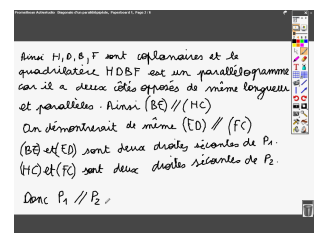 Promethean ActivInspire - Diagonale d'un parallélépipède, Paperboard 1, Page 1 / 6
Ainsi H, D, B, F sont coplanaires et le
quadrilatère HDBF est un parallélogramme
car il a deux côtés opposés de même longueur
et parallèles. Ainsi (BE) // (HC)
On démontrerait de même (ED) // (FC)
(BE) et (ED) sont deux droites sécantes de P1.
(HC) et (FC) sont deux droites sécantes de P2.
Donc P1 // P2